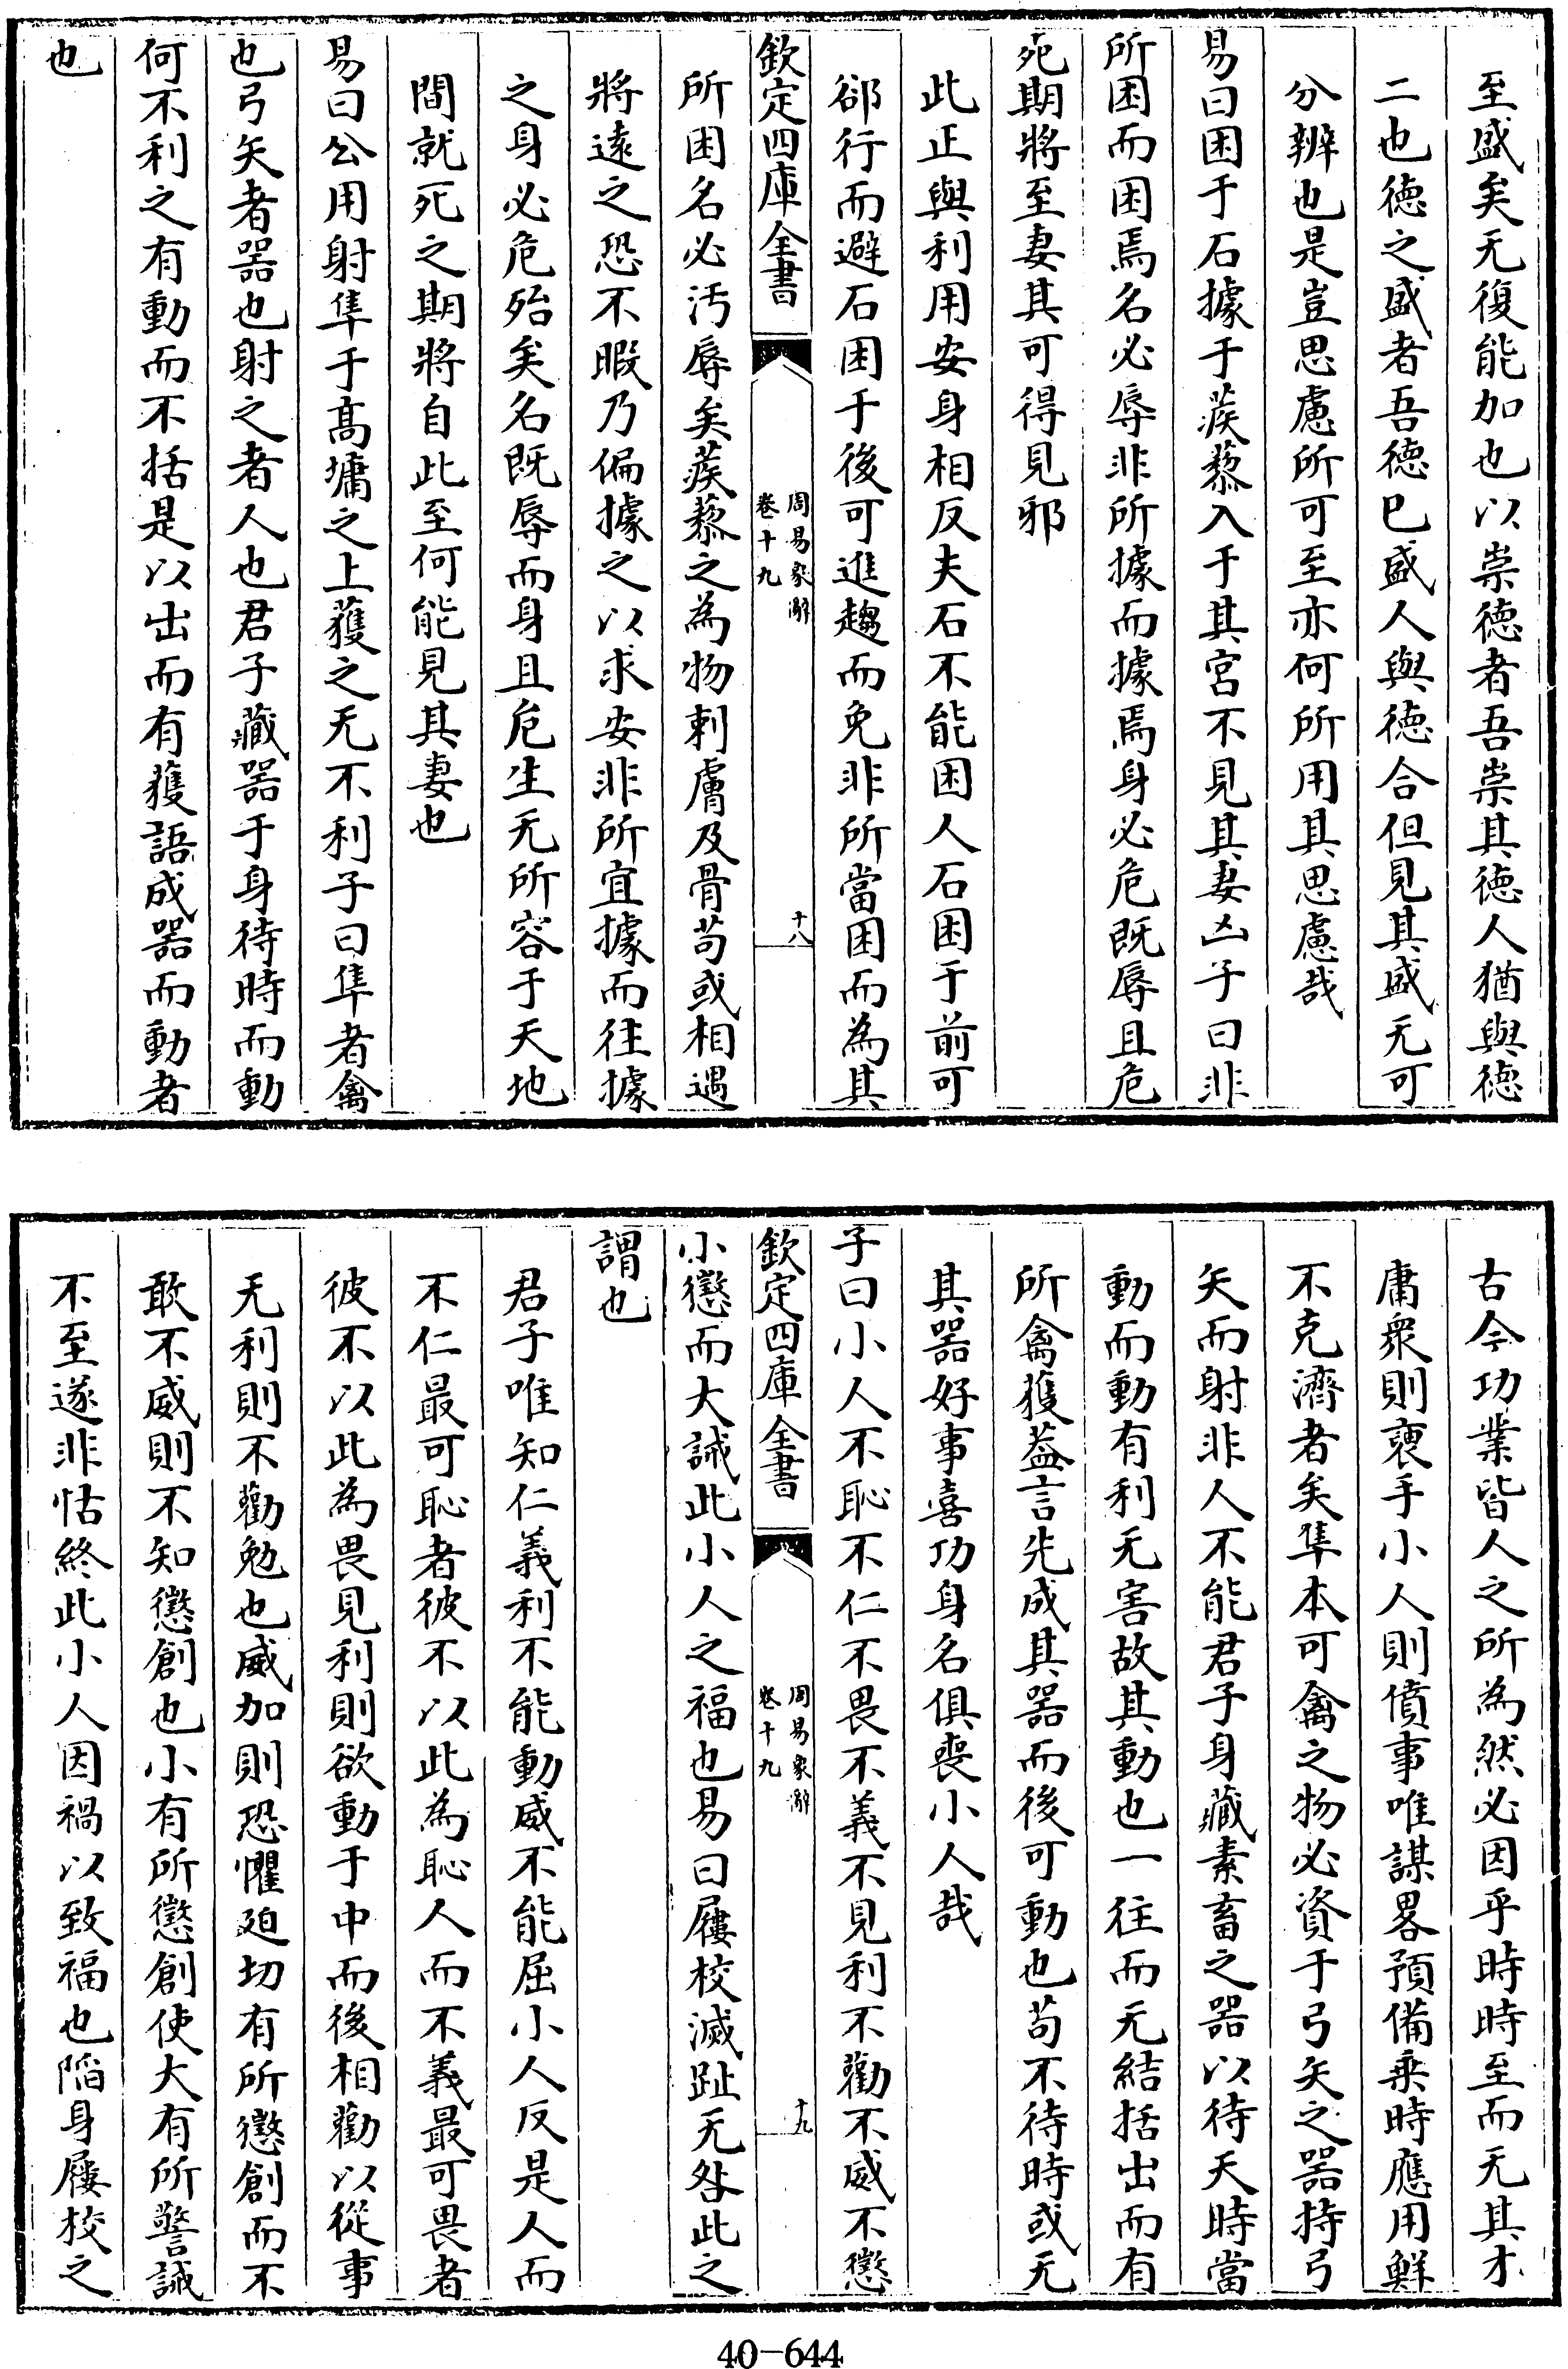 至盛矣无復能加也以崇德者吾崇其徳人猶與徳
二也徳之盛者吾徳已盛人與徳合但見其盛无可
分辨也是豈思慮所可至亦何所用其思慮哉
易曰困于石據于蒺藜入于其宮不見其妻凶子曰非
所困而困焉名必辱非所據而據焉身必危既辱且危
死期將至妻其可得見邪
此正與利用安身相反夫石不能困人石困于前可
郤行而避石困于後可進趨而免非所當困而為其
欽定四庫全書
周易象辭
卷十九
十八
所困名必汚辱矣蒺藜之為物刺膚及骨苟或相遇
將遠之恐不暇乃偏據之以求安非所宜據而往據
之身必危殆矣名既辱而身且危生无所容于天地
間就死之期將自此至何能見其妻也
易曰公用射隼于髙墉之上獲之无不利子曰隼者禽
也弓矢者器也射之者人也君子藏器于身待時而動
何不利之有動而不括是以出而有獲語成器而動者
也
古今功業皆人之所為然必因乎時時至而无其才
庸衆則䙝手小人則僨事唯謀畧預備乘時應用鮮
不克濟者矣隼本可禽之物必資于弓矢之器持弓
矢而射非人不能君子身藏素畜之器以待天時當
動而動有利无害故其動也一往而无結括出而有
所禽獲葢言先成其器而後可動也苟不待時或无
其器好事喜功身名俱喪小人哉
子曰小人不恥不仁不畏不義不見利不勸不威不懲
欽定四庫全書
周易象辭
卷十九
十九
小懲而大誡此小人之福也易曰屨校滅趾无咎此之
謂也
君子唯知仁義利不能動威不能屈小人反是人而
不仁最可恥者彼不以此為恥人而不義最可畏者
彼不以此為畏見利則欲動于中而後相勸以從事
无利則不勸勉也威加則恐懼廹切有所懲創而不
敢不威則不知懲創也小有所懲創使大有所警誡
不至遂非怙終此小人因禍以致福也陷身屨校之
40-644